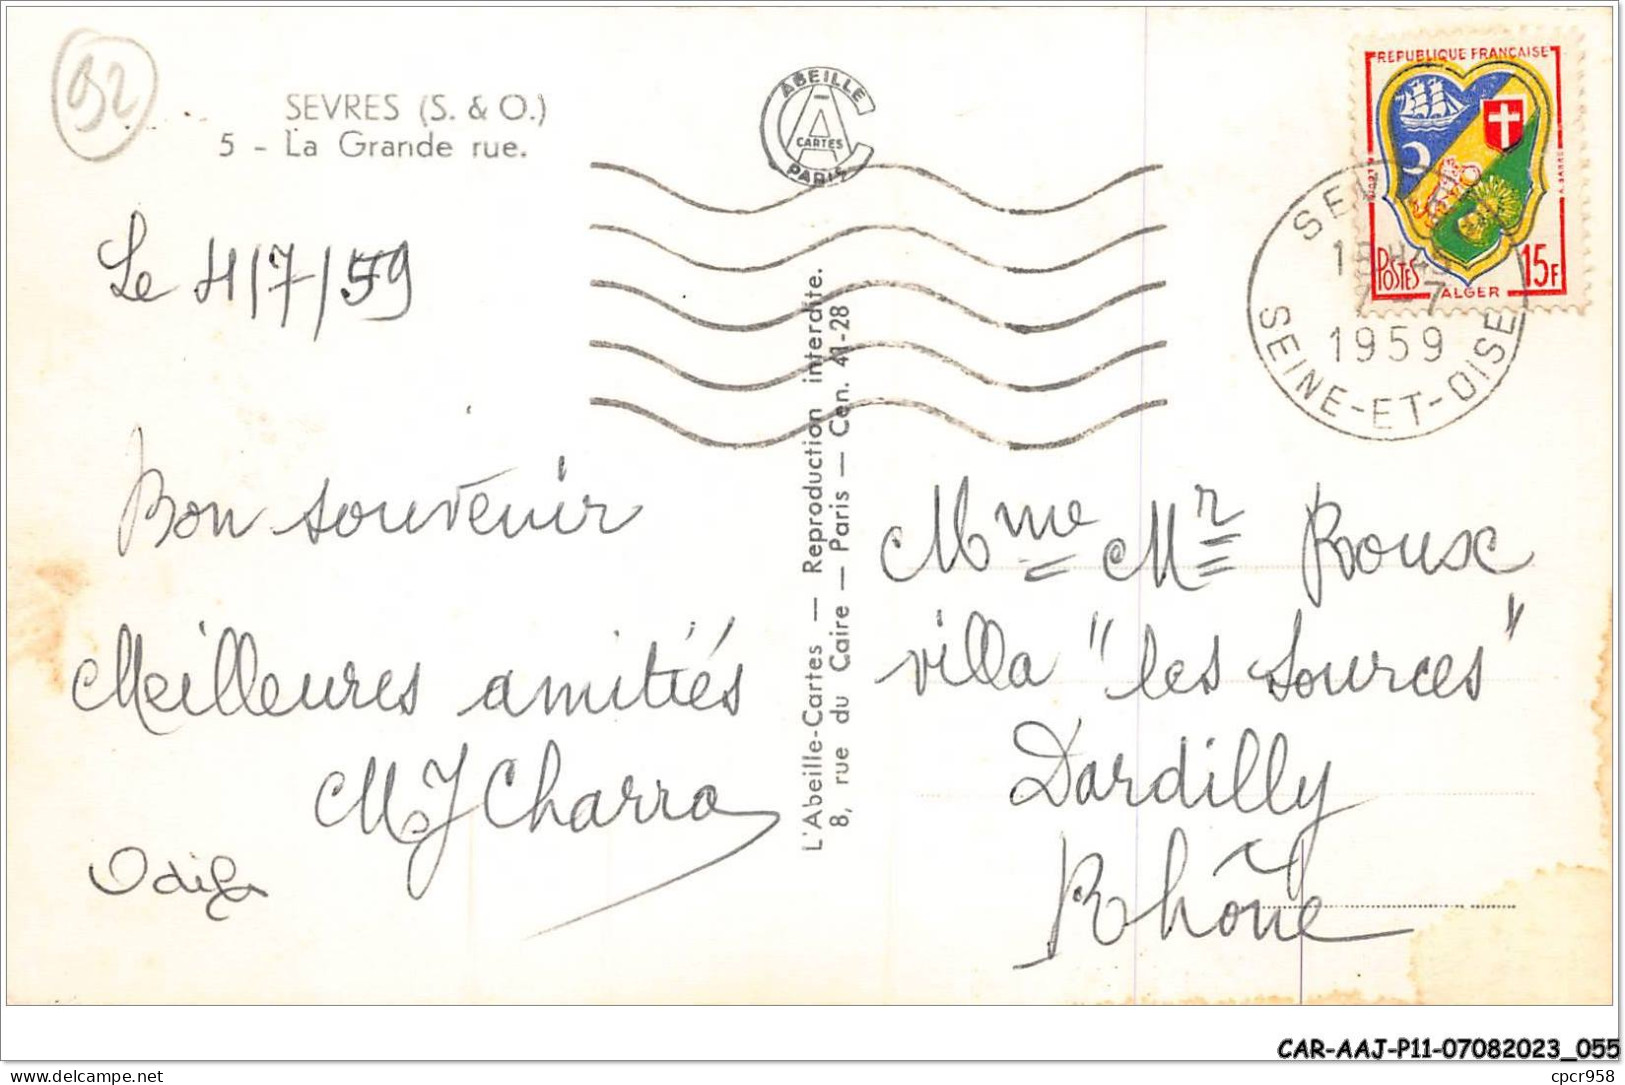 92
SEVRES (S. & O.)
5 - La Grande rue.
ABEILLE
CARTES
PARIS
REPUBLIQUE FRANÇAISE
POSTES
ALGER
15F
7-7
1959
SEINE-ET-OISE
Le 4/7/59
Bon souvenir
Meilleures amitiés
MJ Charra
Odile
L'Abeille-Cartes — Reproduction interdite.
8, rue du Caire — Paris — Cen. 41-28
Mme Mr Roux
villa "les sources"
Dardilly
Rhône
CAR-AAJ-P11-07082023_055
www.delcampe.net
cpcr958